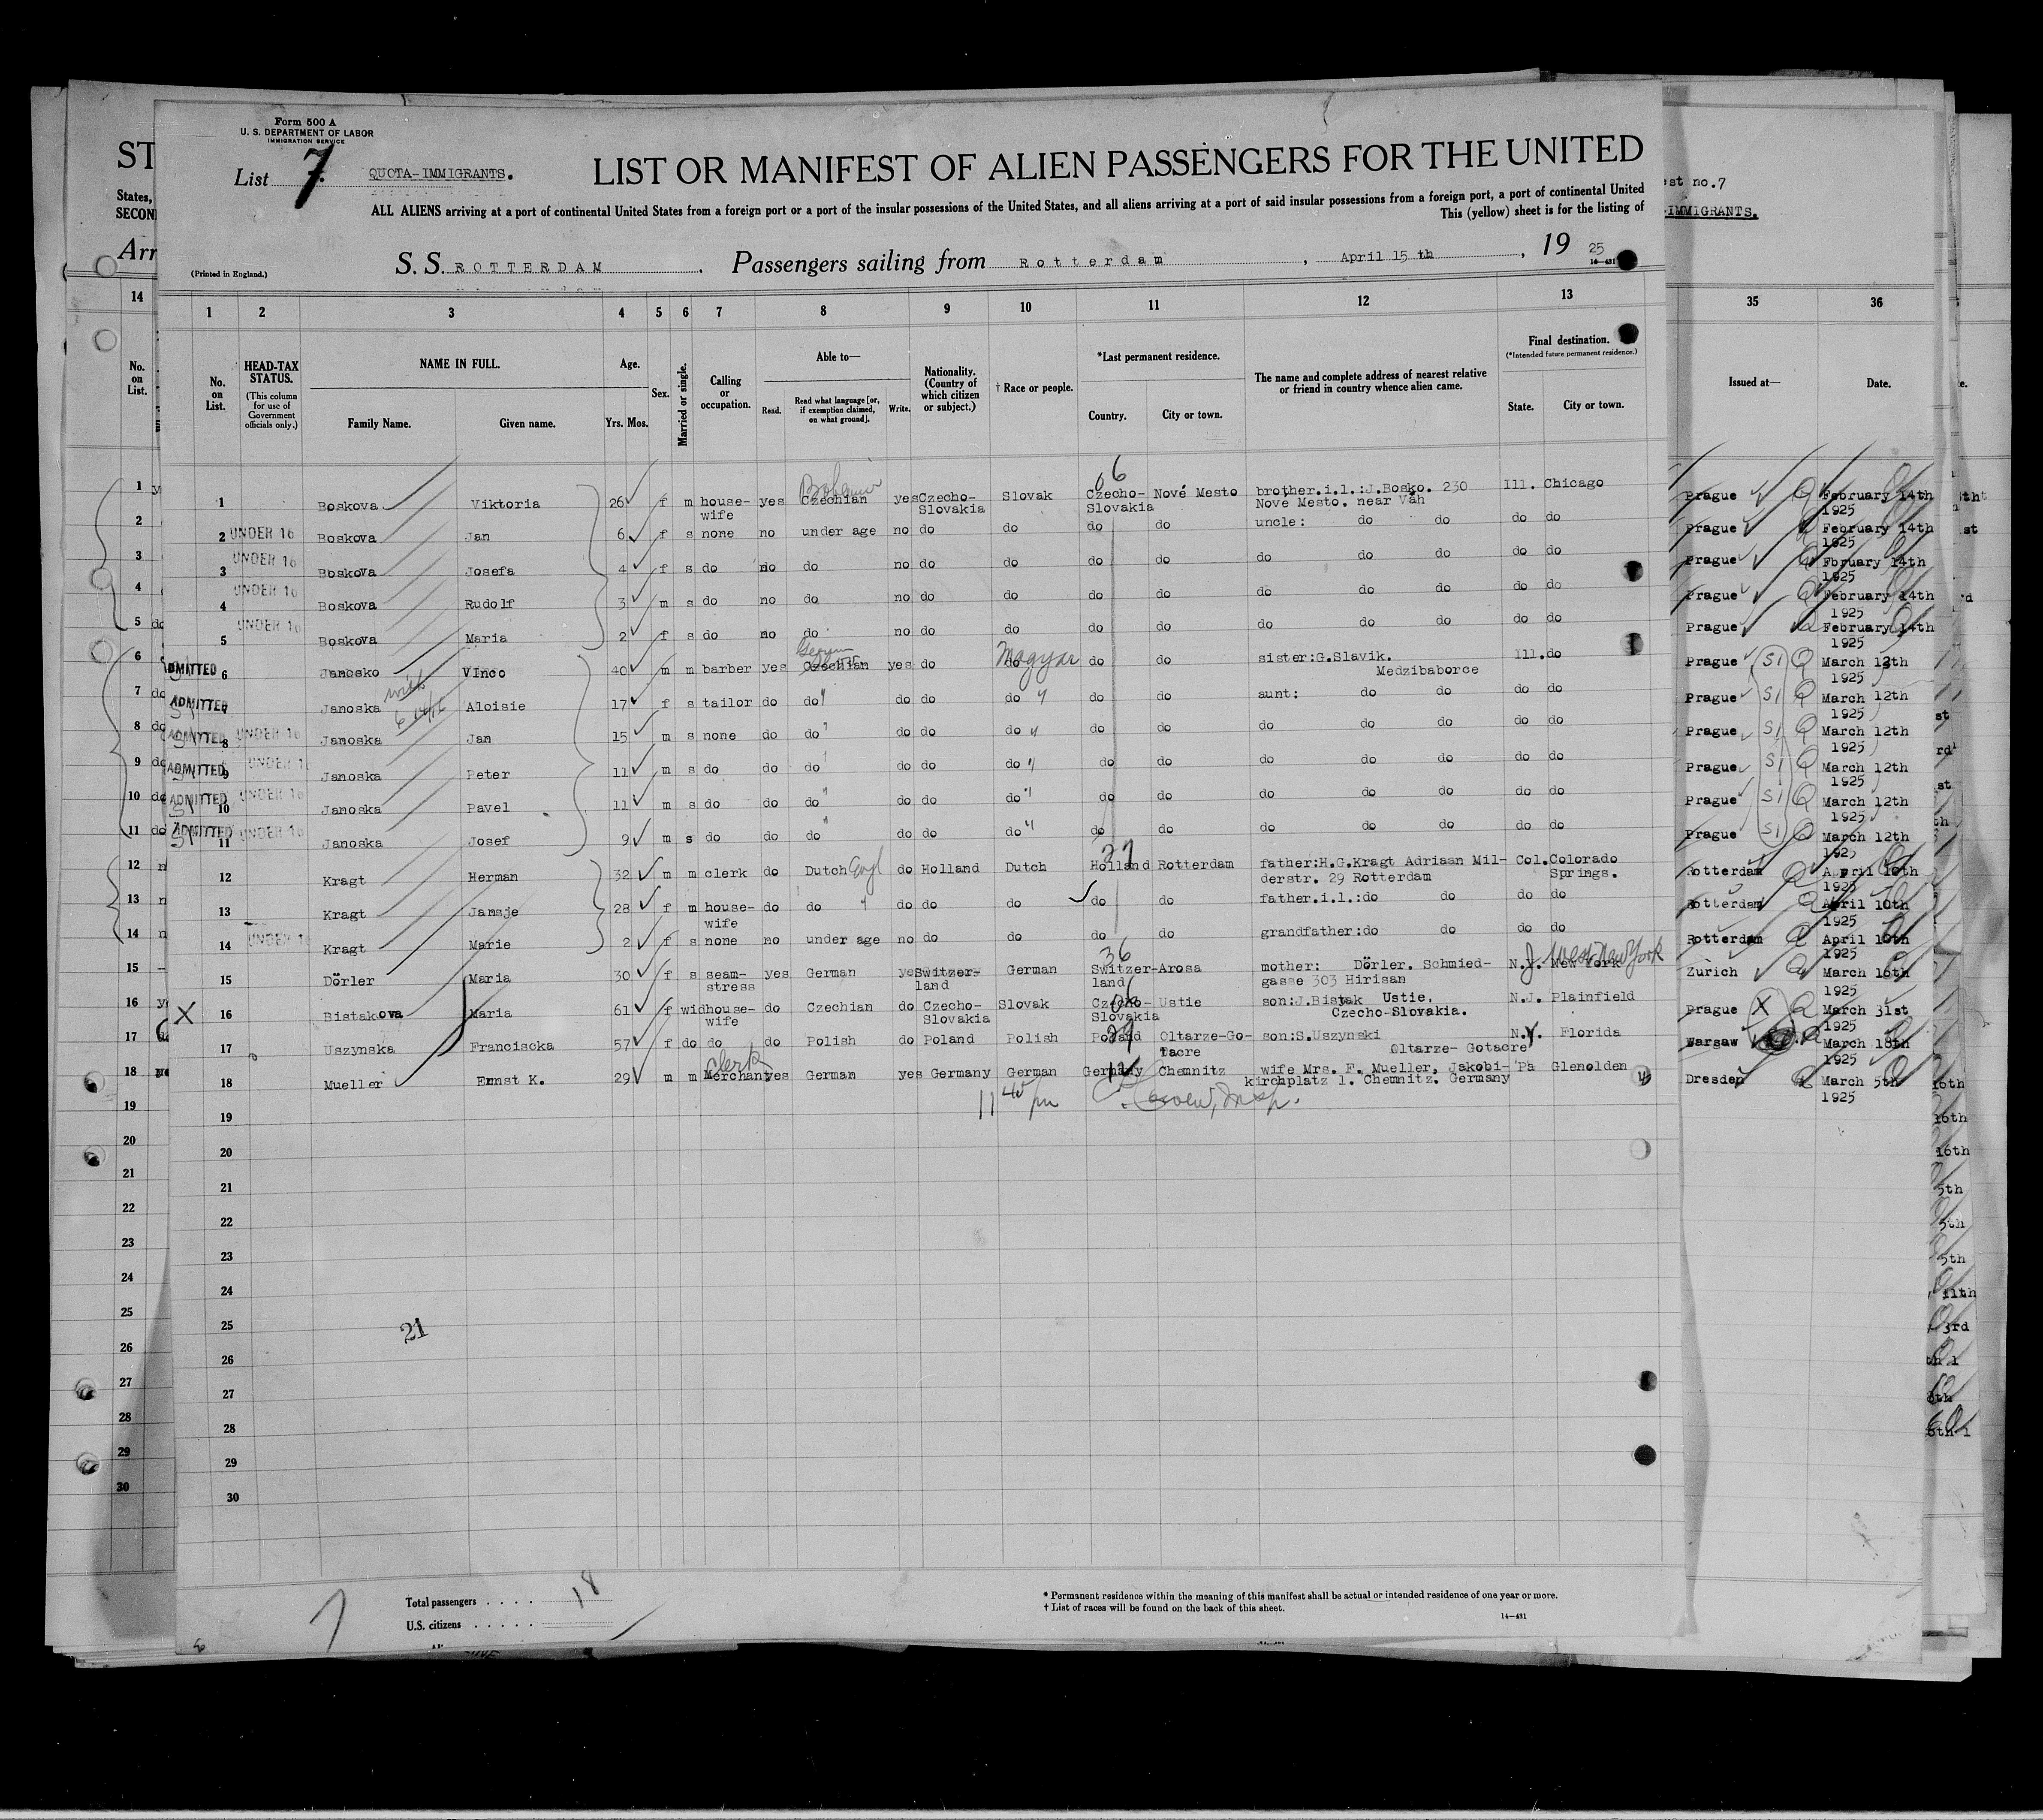 Form 500 A
U. S. DEPARTMENT OF LABOR
IMMIGRATION SERVICE
List 7 QUOTA-IMMIGRANTS.
LIST OR MANIFEST OF ALIEN PASSENGERS FOR THE UNITED
ALL ALIENS arriving at a port of continental United States from a foreign port or a port of the insular possessions of the United States, and all aliens arriving at a port of said insular possessions from a foreign port, a port of continental United
This (yellow) sheet is for the listing of
(Printed in England.)
S. S. ROTTERDAM . Passengers sailing from Rotterdam , April 15 th , 19 25
14-431
ST
States,
SECON
Arr
est no.7
-IMMIGRANTS.
14 1 2 3 4 5 6 7 8 9 10 11 12 13 35 36
No. on List.
No. on List.
HEAD-TAX STATUS.
(This column for use of Government officials only.)
NAME IN FULL.
Family Name. Given name.
Age.
Yrs. Mos.
Sex.
Married or single.
Calling or occupation.
Able to—
Read. Read what language [or, if exemption claimed, on what ground]. Write.
Nationality. (Country of which citizen or subject.)
† Race or people.
*Last permanent residence.
Country. City or town.
The name and complete address of nearest relative or friend in country whence alien came.
Final destination.
(*Intended future permanent residence.)
State. City or town.
Issued at— Date.
06
Bohemian
1 1 Boskova Viktoria 26 f m house-wife yes Czechian yes Czecho-Slovakia Slovak Czecho-Slovakia Nové Mesto brother.i.l.:J.Bosko. 230 Nove Mesto. near Váh Ill. Chicago Prague February 14th 1925
2 2 UNDER 16 Boskova Jan 6 f s none no under age no do do do do uncle: do do do do Prague February 14th 1925
3 3 UNDER 16 Boskova Josefa 4 f s do no do no do do do do do do do do do Prague Fbruary 14th 1925
4 4 UNDER 16 Boskova Rudolf 3 m s do no do no do do do do do do do do do Prague February 14th 1925
5 5 UNDER 16 Boskova Maria 2 f s do no do no do do do do do do do do do Prague February 14th 1925
6 ADMITTED 6 Janosko Vinco 40 m m barber yes Czechian German yes do do Magyar do do sister:G.Slavik. Medzibaborce Ill. do Prague SI March 12th 1925
7 do ADMITTED 7 Janoska Aloisie 17 f s tailor do do " do do do " do do aunt: do do do do Prague SI March 12th 1925
8 do ADMITTED 8 UNDER 16 Janoska Jan 15 m s none do do " do do do " do do do do do do do Prague SI March 12th 1925
9 do ADMITTED 9 UNDER 16 Janoska Peter 11 m s do do do " do do do " do do do do do do do Prague SI March 12th 1925
10 do ADMITTED 10 UNDER 16 Janoska Pavel 11 m s do do do " do do do " do do do do do do do Prague SI March 12th 1925
11 do ADMITTED 11 UNDER 16 Janoska Josef 9 m s do do do " do do do " do do do do do do do Prague SI March 12th 1925
27
12 12 Kragt Herman 32 m m clerk do Dutch Engl do Holland Dutch Holland Rotterdam father:H.G.Kragt Adriaan Mil-derstr. 29 Rotterdam Col. Colorado Springs. Rotterdam April 10th 1925
13 13 Kragt Jansje 28 f m house-wife do do " do do do do do father.i.l.:do do do do Rotterdam April 10th 1925
14 14 UNDER 16 Kragt Marie 2 f s none no under age no do do do do grandfather:do do do do Rotterdam April 10th 1925
36
West New York
15 15 Dörler Maria 30 f s seam-stress yes German yes Switzer-land German Switzer-land Arosa mother: Dörler. Schmied-gasse 303 Hirisan N.J. New York Zürich March 16th 1925
16 X 16 Bistakova Maria 61 f wid house-wife do Czechian do Czecho-Slovakia Slovak Czecho-Slovakia Ustie son:J.Bistak Ustie, Czecho-Slovakia. N.J. Plainfield Prague X March 31st 1925
17 17 Uszynska Franciscka 57 f do do do Polish do Poland Polish Poland Oltarze-Go-tacre son:S.Uszynski Oltarze- Gotacre N.Y. Florida Warsaw March 18th 1925
clerk
18 18 Mueller Ernst K. 29 m m Merchant yes German yes Germany German Germany Chemnitz wife Mrs. F. Mueller, Jakobi-kirchplatz 1. Chemnitz. Germany Pa Glenolden Dresden March 5th 1925
11 40 pm Insp.
19 19
20 20
21 21
22 22
23 23
24 24
25 25
26 26
27 27
28 28
29 29
30 30
21
Total passengers . . . . 18
U.S. citizens . . . . .
* Permanent residence within the meaning of this manifest shall be actual or intended residence of one year or more.
† List of races will be found on the back of this sheet.
14—431